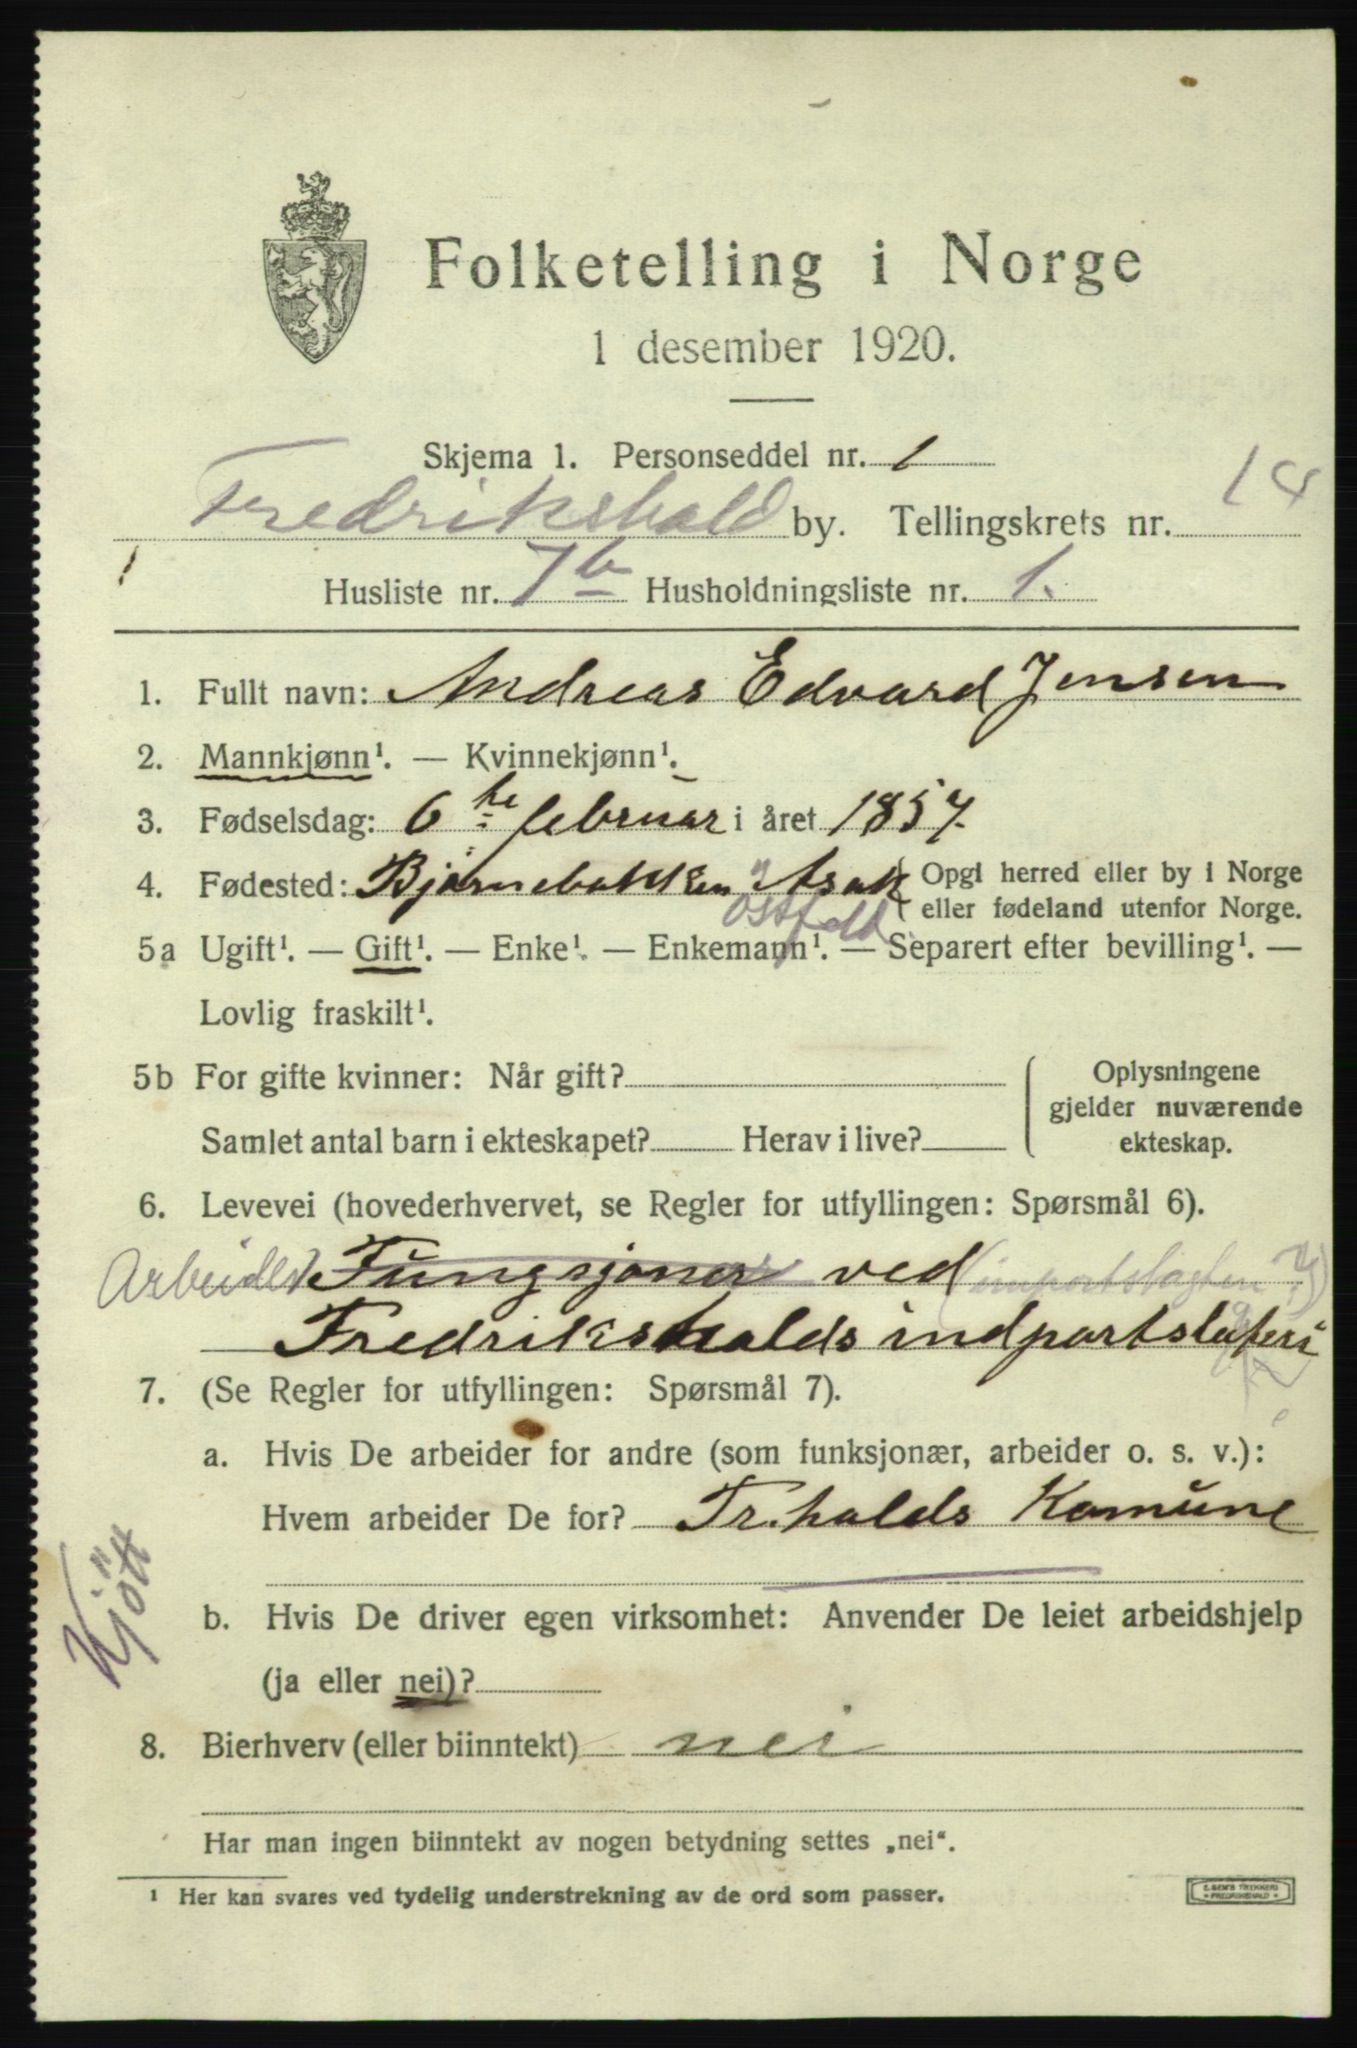 Folketelling i Norge
1 desember 1920.
Skjema 1. Personseddel nr. 1
Fredrikshald by. Tellingskrets nr. 14
Husliste nr. 7b Husholdningsliste nr. 1.
1. Fullt navn: Andreas Edvard Jensen
2. Mannkjønn¹. — Kvinnekjønn¹.
3. Fødselsdag: 6 te februar i året 1857.
4. Fødested: Bjørnebakken Asak Opgi herred eller by i Norge
Østfold eller fødeland utenfor Norge.
5a Ugift¹. — Gift¹. — Enke¹. — Enkemann¹. — Separert efter bevilling¹. —
Lovlig fraskilt¹.
5b For gifte kvinner: Når gift?
Oplysningene gjelder nuværende ekteskap.
Samlet antal barn i ekteskapet? Herav i live?
6. Levevei (hovederhvervet, se Regler for utfyllingen: Spørsmål 6).
Arbeider Fungsjoner ved
Fredrikshalds indportslateri
7. (Se Regler for utfyllingen: Spørsmål 7).
a. Hvis De arbeider for andre (som funksjonær, arbeider o. s. v.):
Hvem arbeider De for? Fr.halds Komune
Kjött
b. Hvis De driver egen virksomhet: Anvender De leiet arbeidshjelp
(ja eller nei)?
8. Bierhverv (eller biinntekt) nei
Har man ingen biinntekt av nogen betydning settes „nei“.
¹ Her kan svares ved tydelig understrekning av de ord som passer.